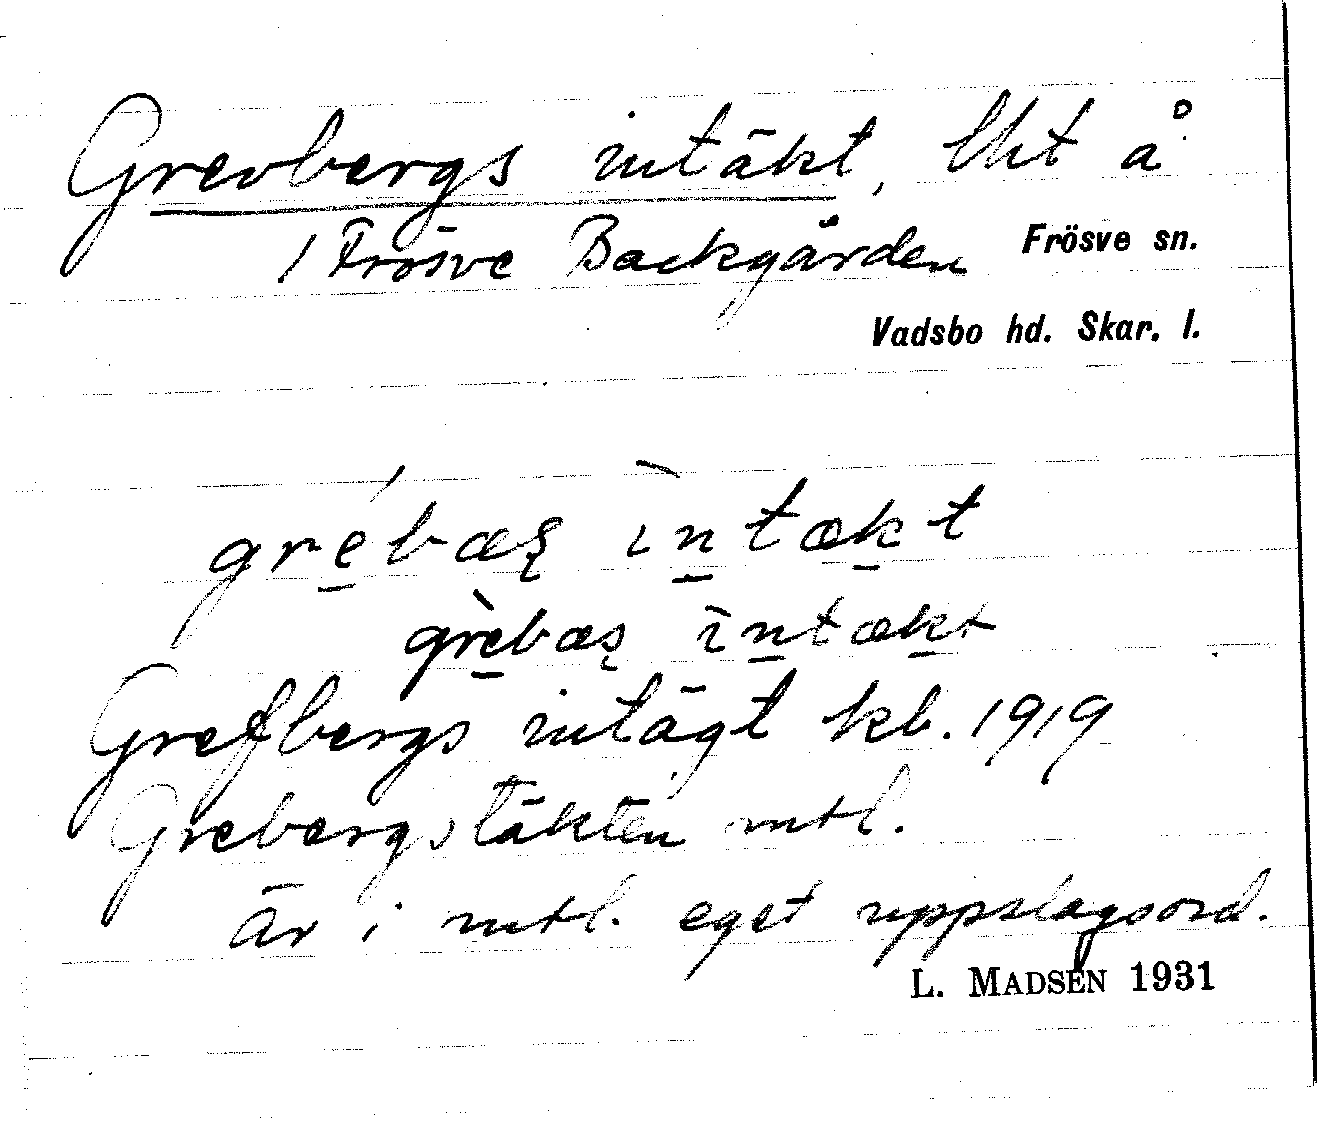 Grevbergs intäkt, lht å
1 Frösve Backgården Frösve sn.
Vadsbo hd. Skar. l.
grébæș ìntækt
grèbæș ìntækt
Grefbergs intägt kb. 1919
Grebergstäkten mtl.
Är i mtl. eget uppslagsord.
L. MADSEN 1931